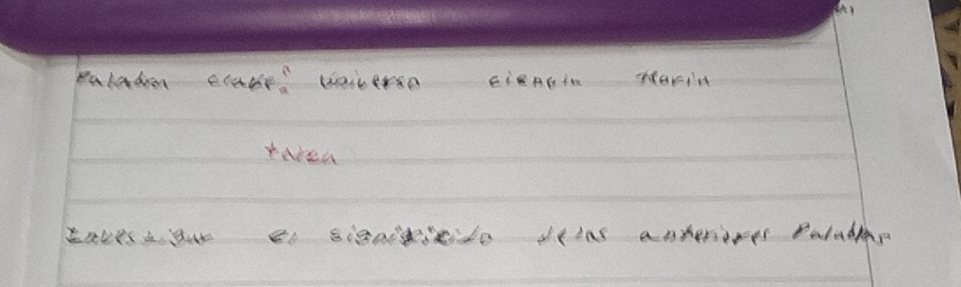 Palabra clave: universo ciencia
tarea
Investigar el significado de las anteriores Palabras